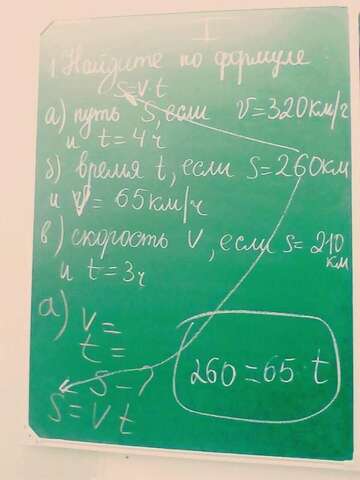 I
1 Найдите по формуле
S=v·t
а) путь S, если v=320км/г
и t=4ч
б) время t, если S=260км
и V= 65км/ч
в) скорость v, если s=210
км
и t=3ч
а) v=
t=
S-?
S=v t
260=65 t